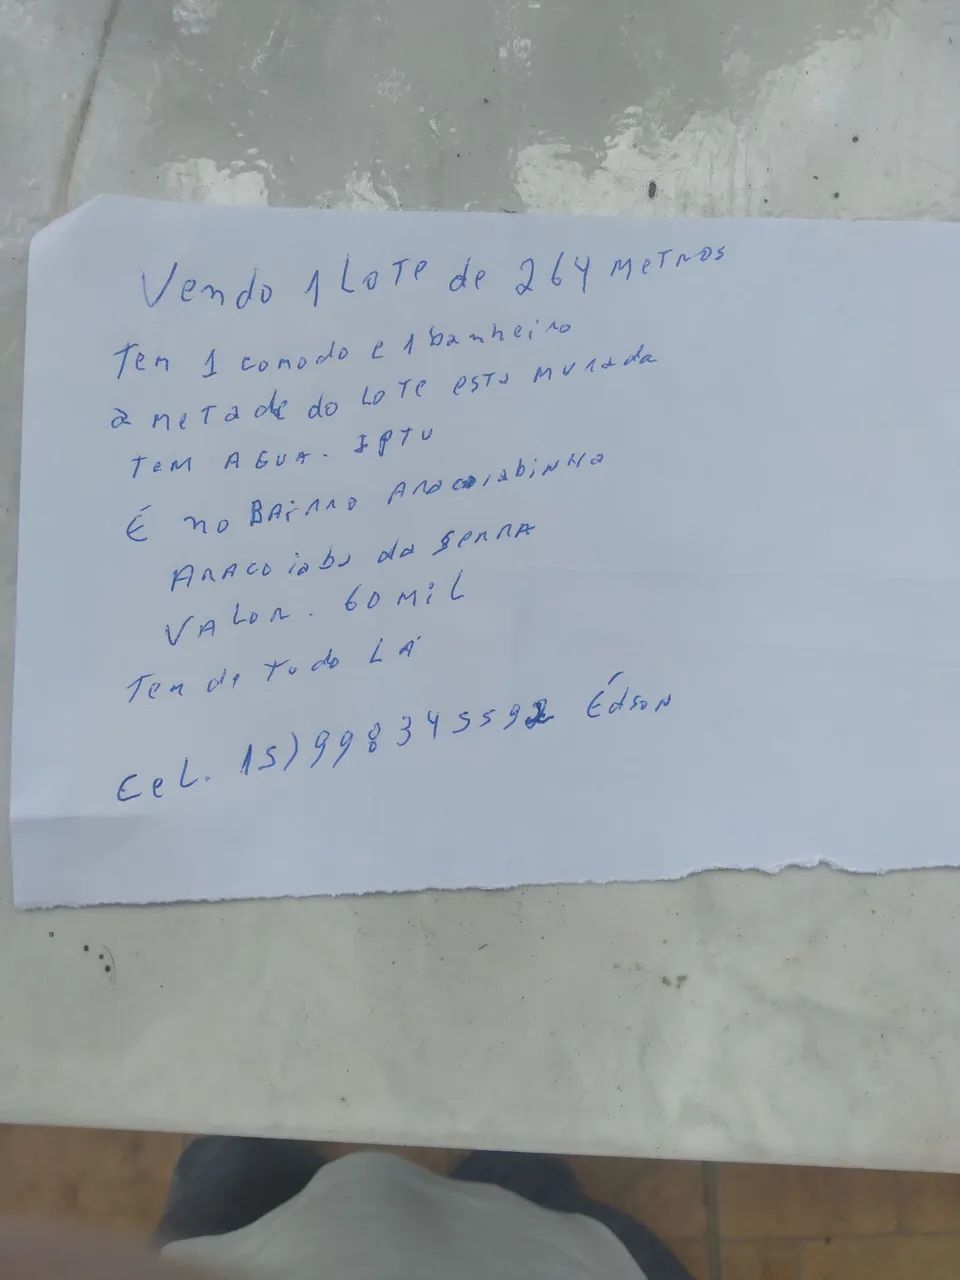 Vendo 1 LoTe de 264 meTros
Tem 1 comodo e 1 banheiro
a meTade do LoTe esta murada
Tem AGUA. IPTU
É no BAirro Aracoiabinha
Aracoiaba da Serra
VALor. 60 MiL
Tem de Tudo LÁ
CeL. 15) 998345592 Édson